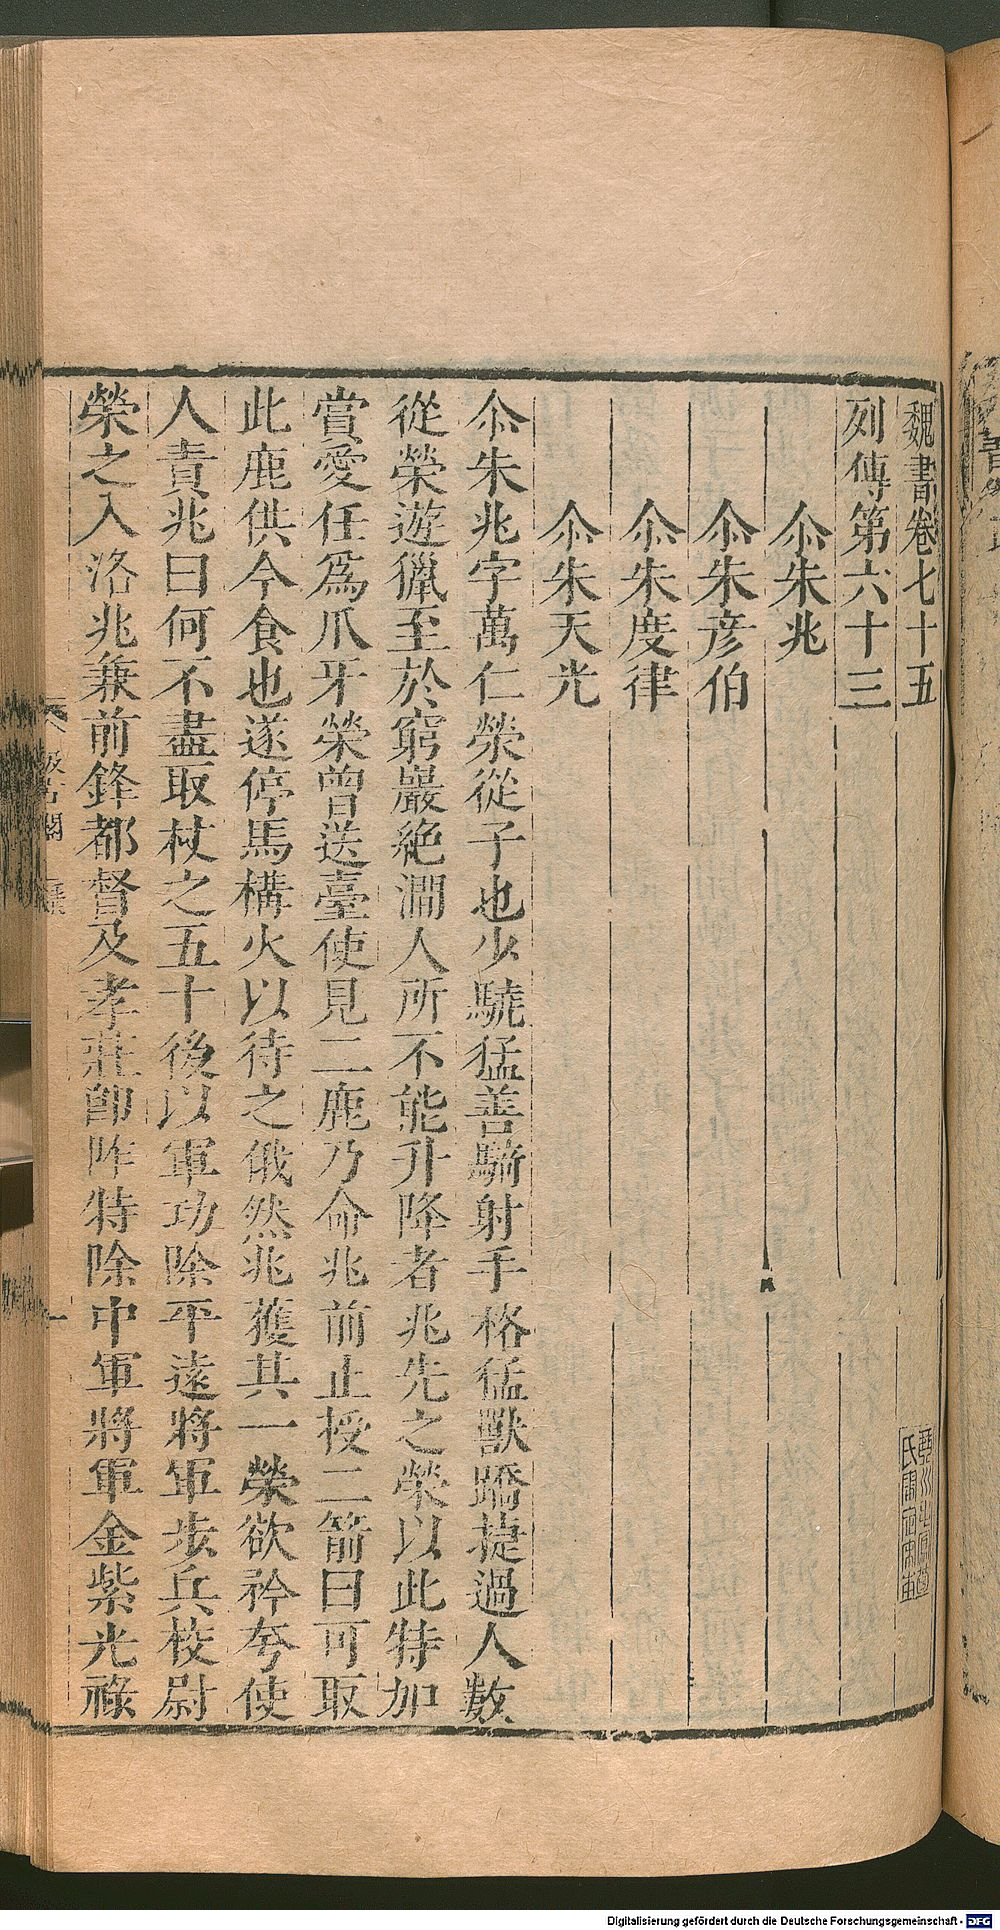 魏書卷七十五
列傳第六十三
尒朱兆
尒朱彦伯
尒朱度律
尒朱天光
尒朱兆字萬仁榮從子也少驍猛善騎射手格猛獸蹻捷過人數
從榮遊獵至於窮巖絶澗人所不能升降者兆先之榮以此特加
賞愛任爲爪牙榮曾送臺使見二鹿乃命兆前止授二箭曰可取
此鹿供今食也遂停馬構火以待之俄然兆獲其一榮欲矜夸使
人責兆曰何不盡取杖之五十後以軍功除平遠將軍步兵校尉
榮之入洛兆兼前鋒都督及孝莊卽阼特除中軍將軍金紫光祿
Digitalisierung gefördert durch die Deutsche Forschungsgemeinschaft - DFG